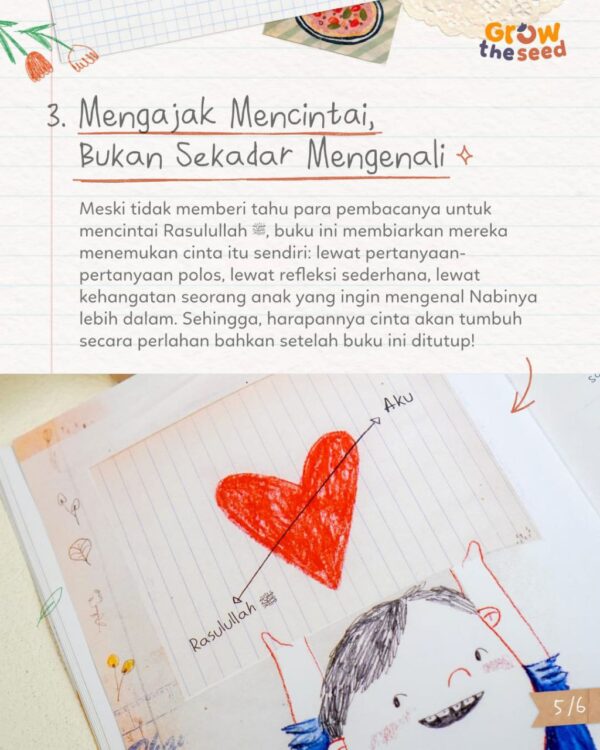 Grow
the seed
3. Mengajak Mencintai,
Bukan Sekadar Mengenali
Meski tidak memberi tahu para pembacanya untuk
mencintai Rasulullah ﷺ, buku ini membiarkan mereka
menemukan cinta itu sendiri: lewat pertanyaan-
pertanyaan polos, lewat refleksi sederhana, lewat
kehangatan seorang anak yang ingin mengenal Nabinya
lebih dalam. Sehingga, harapannya cinta akan tumbuh
secara perlahan bahkan setelah buku ini ditutup!
Aku
Rasulullah ﷺ
5/6